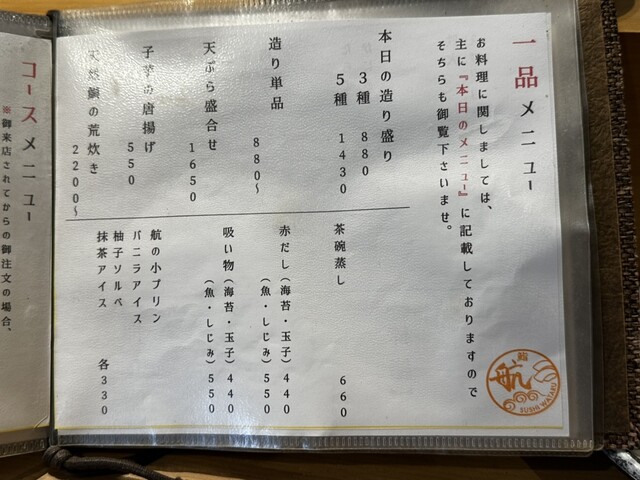 一品メニュー
お料理に関しましては、
主に『本日のメニュー』に記載しておりますので
そちらも御覧下さいませ。
本日の造り盛り
3種 880
5種 1430
造り単品
880〜
天ぷら盛合せ
1650
子芋の唐揚げ
550
天然鯛の荒炊き
2200〜
茶碗蒸し
660
赤だし(海苔・玉子)440
(魚・しじみ)550
吸い物(海苔・玉子)440
(魚・しじみ)550
航の小プリン
バニラアイス
柚子ソルベ
抹茶アイス 各330
鮨
航
SUSHI WATARU
コースメニュー
※御来店されてからの御注文の場合、